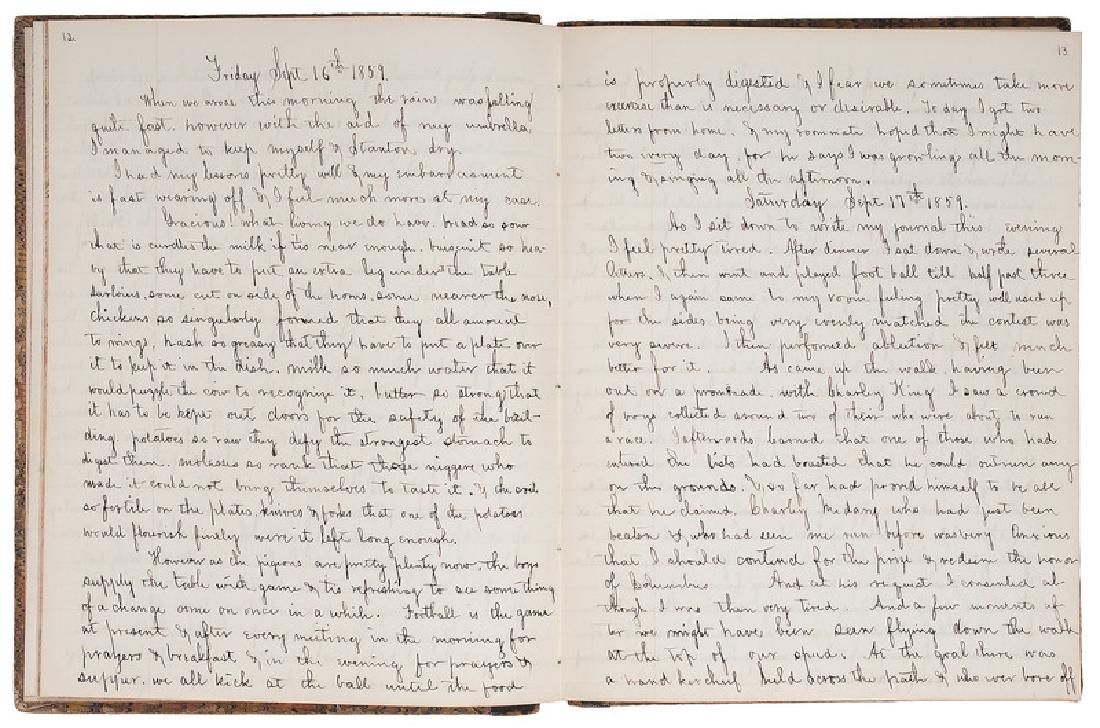 12.
Friday Sept 16th 1859.
When we arose this morning the rain was falling
quite fast. however with the aid of my umbrella
I managed to keep myself & Stanton dry.
I had my lessons pretty well & my embarrasment
is fast wearing off & I feel much more at my ease.
Gracious! what living we do have. bread so sour
that is curdles the milk if tis near enough. buiscuit so hea-
vy that they have to put an extra leg under the table
some cut on side of the horns, some nearer the nose,
chickens so singularly formed that they all amount
to wings, hash so greasy that they have to put a plate over
it to keep it in the dish. milk so much water that it
would puzzle the cow to recognize it, butter so strong that
it has to be kept out doors for the safety of the buil-
ding. potatoes so raw they defy the strongest stomach to
digest them. molases so rank that those niggers who
made it could not bring themselves to taste it. & the soil
so fertile on the plates, knives & forks that one of the potatoes
would flourish finely were it left long enough.
However as the pigeons are pretty plenty now, the boys
supply the table with game & tis refreshing to see something
of a change come on once in a while. Football is the game
at present & after every meeting in the morning for
prayers & breakfast & in the evening for prayers &
supper. we all kick at the ball until the food
13
is properly digested & I fear we sometimes take more
exercise than is necessary or desirable. To day I got two
letters from home. & my roommate hoped that I might have
two every day. for he says I was growling all the morn-
ing & singing all the afternoon.
Saturday Sept 17th 1859.
As I sit down to write my journal this evening
I feel pretty tired. After dinner I sat down & wrote several
letters. & then went and played foot ball till half past three
when I again came to my room feeling pretty well used up
for the sides being very evenly matched the contest was
very severe. I then performed ablution & felt much
better for it. As came up the walk. having been
out on a promenade with Charley King I saw a crowd
of boys collected around two of their who were about to run
a race. I afterwards learned that one of these who had
entered the lists had boasted that he could outrun any
on the grounds. & so far had proved himself to be all
that he claimed. Charley who had just been
beaten & who had seen me run before was very Anxious
that I should contend for the prize & redeem the honor
of Columbus And at his request I consented al-
though I was then very tired. And a few moments af-
ter we might have been seen flying down the walk
at the top of our speed. At the goal there was
a hand kerchief held across the path & who ever bore off